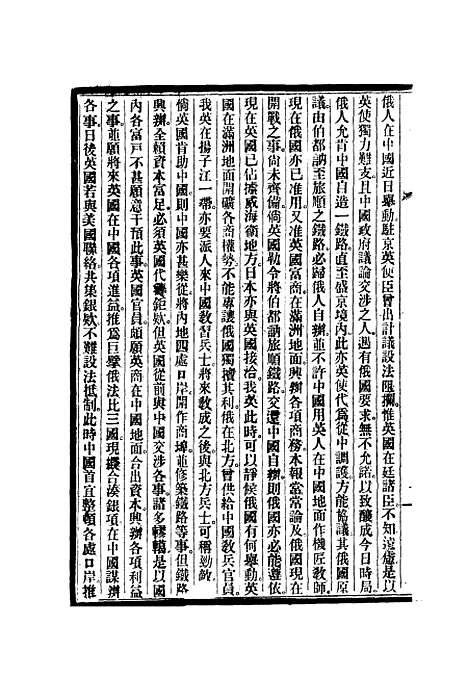 俄人在中國近日舉動駐京英使臣曾出計議設法阻攔惟英國在廷諸臣不知遠慮是以
英使獨力難支且中國政府議論交涉之人遇有俄國要求無不允諾以致釀成今日時局
俄人允肯中國自造一鐵路直至盛京境內此亦英使代爲從中調護方能協議其俄國原
議由伯都訥至旅順之鐵路必歸俄人自辦並不許中國用英人在中國地面作機匠教師
現在俄國亦已准用又准英國富商在滿洲地面興辦各項商務本報嘗常論及俄國現在
開戰之事尚未齊備倘英國勒令將伯都訥旅順鐵路交還中國自辦則俄國亦必能遵依
現在英國已佔據威海衛地方日本亦與英國接洽我英此時可以靜候俄國有何舉動英
國在滿洲地面開礦各商權勢不能專讓俄國獨擅其利俄在北方曾供給中國教兵官員
我英在揚子江一帶亦要派人來中國教習兵士將來教成之後與北方兵士可稱勁敵
倘英國肯助中國則中國亦甚樂從將內地四處口岸開作商埠並修築鐵路等事但鐵路
興辦全賴資本富足必須英國代籌鉅欵但英國從前與中國交涉各事諸多轇轕是以國
內各富戶不甚願意干預此事英國官員頗願英商在中國地面合出資本興辦各項利益
之事並願將來英國在中國各項進益推爲巨擘俄法比三國現擬合湊銀項在中國謀辦
各事日後英國若與美國聯絡共集銀欵不難設法抵制此時中國首宜整頓各處口岸推